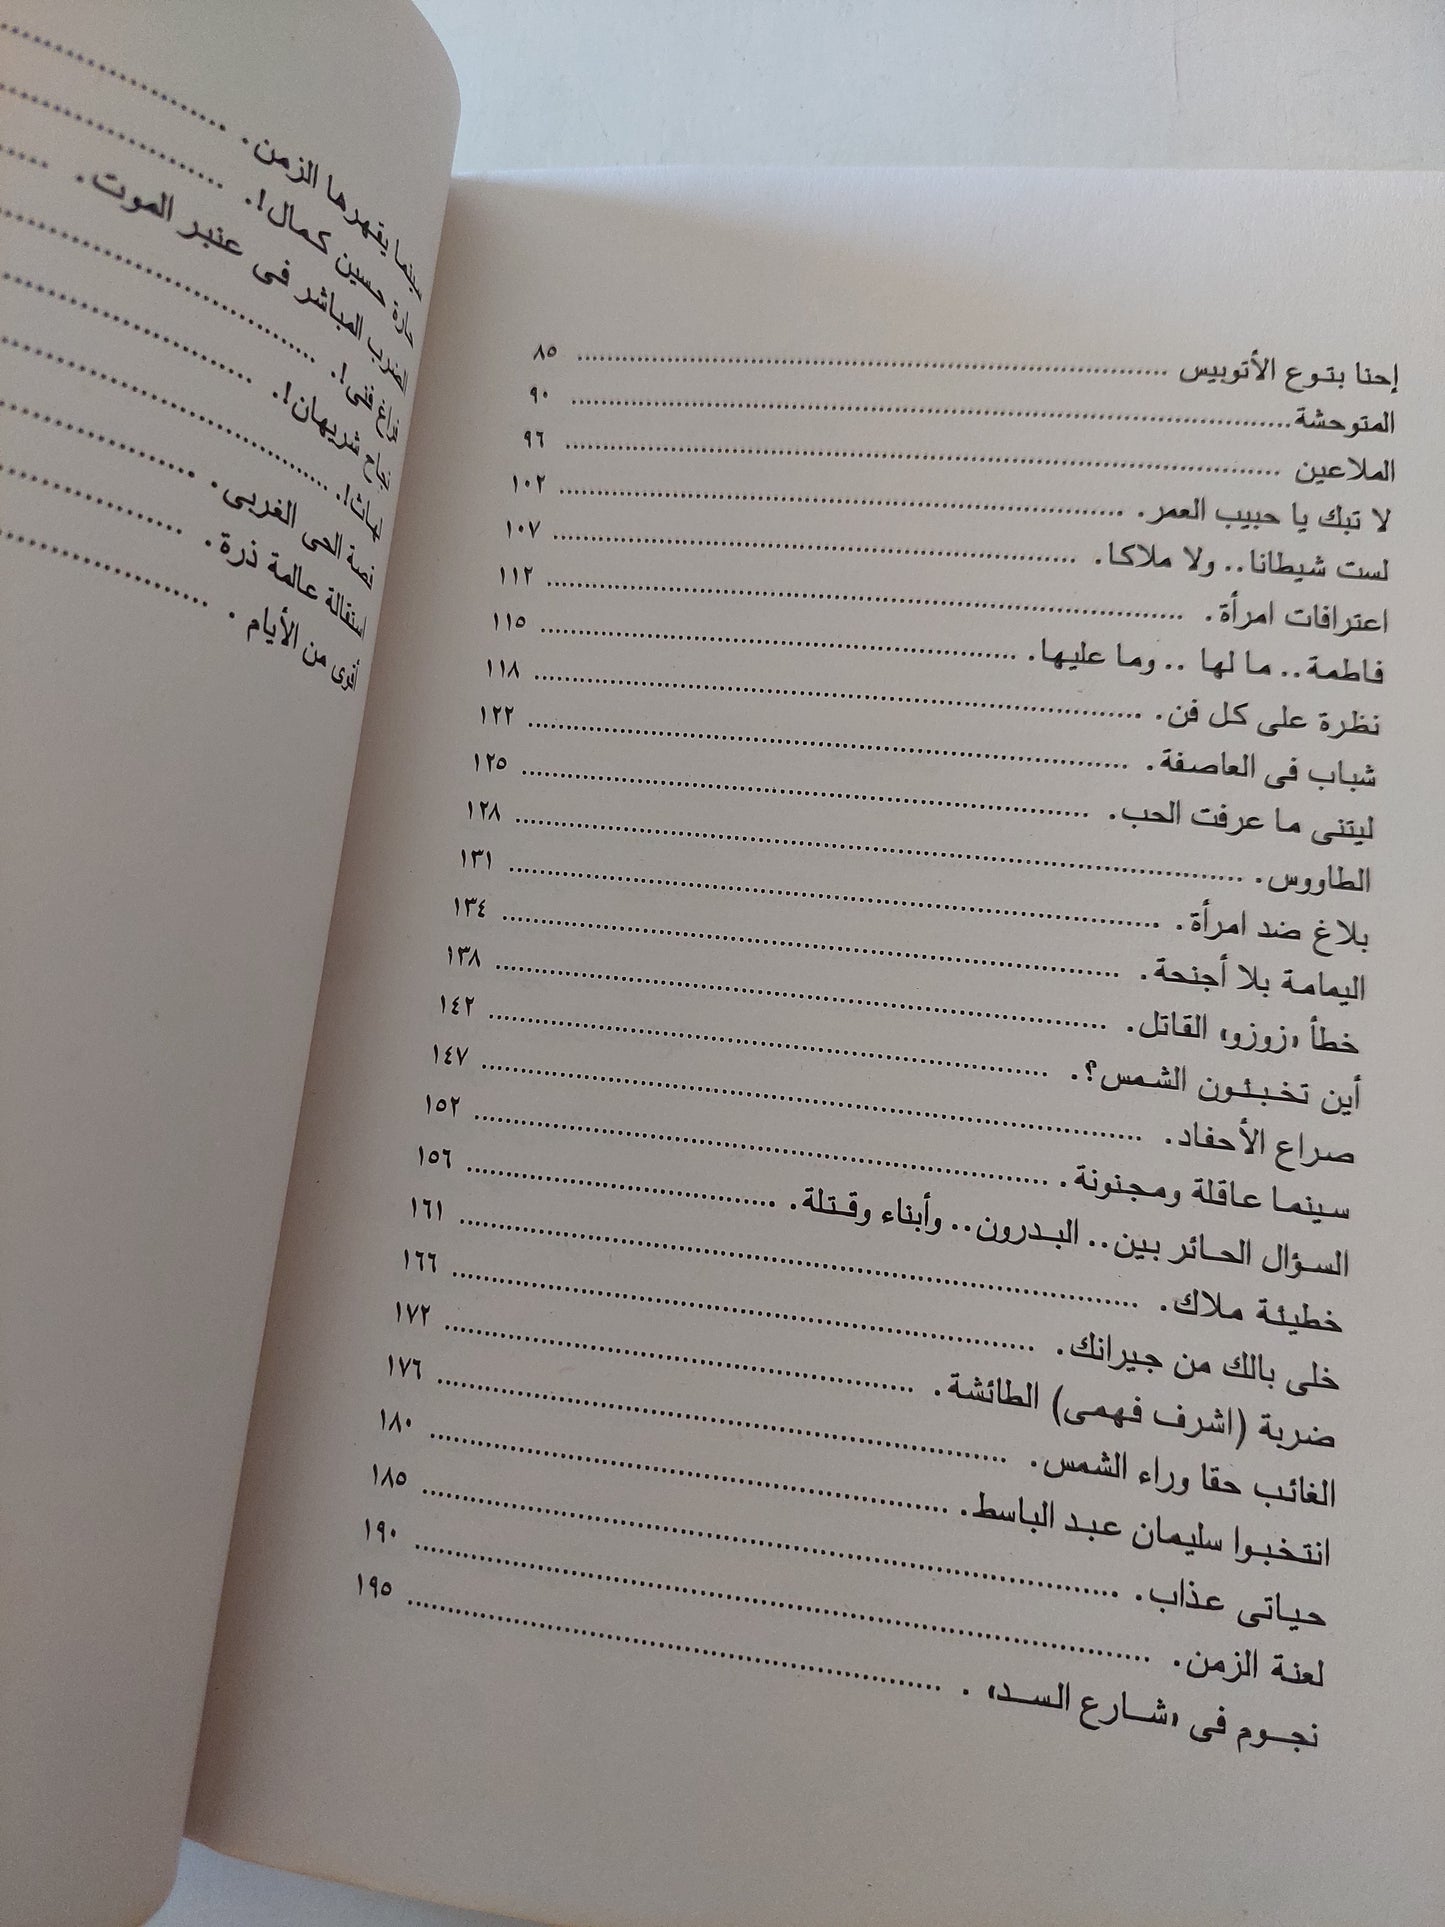 إحنا بتوع الأتوبيس ........ ٨٥
المتوحشة ........ ٩٠
الملاعين ........ ٩٦
لا تبك يا حبيب العمر. ........ ١٠٢
لست شيطانا.. ولا ملاكا. ........ ١٠٧
اعترافات امرأة. ........ ١١٢
فاطمة.. ما لها .. وما عليها. ........ ١١٥
نظرة على كل فن. ........ ١١٨
شباب فى العاصفة. ........ ١٢٢
ليتنى ما عرفت الحب. ........ ١٢٥
الطاووس. ........ ١٢٨
بلاغ ضد امرأة. ........ ١٣١
اليمامة بلا أجنحة. ........ ١٣٤
خطأ «زوزو» القاتل. ........ ١٣٨
أين تخبئون الشمس؟. ........ ١٤٢
صراع الأحفاد. ........ ١٤٧
سينما عاقلة ومجنونة. ........ ١٥٢
السؤال الحائر بين.. البدرون.. وأبناء وقتلة. ........ ١٥٦
خطيئة ملاك. ........ ١٦١
خلى بالك من جيرانك. ........ ١٦٦
ضربة (اشرف فهمى) الطائشة. ........ ١٧٢
الغائب حقا وراء الشمس. ........ ١٧٦
انتخبوا سليمان عبد الباسط. ........ ١٨٠
حياتى عذاب. ........ ١٨٥
لعنة الزمن. ........ ١٩٠
نجوم فى «شارع السد» . ........ ١٩٥
سينما يقهرها الزمن. ........
حارة حسين كمال!. ........
الضرب المباشر فى عنبر الموت. ........
فراغ فنى!. ........
نجاح شريهان!. ........
لهاث!. ........
قصة الحى الغربى. ........
استقالة عالمة ذرة. ........
أقوى من الأيام . ........